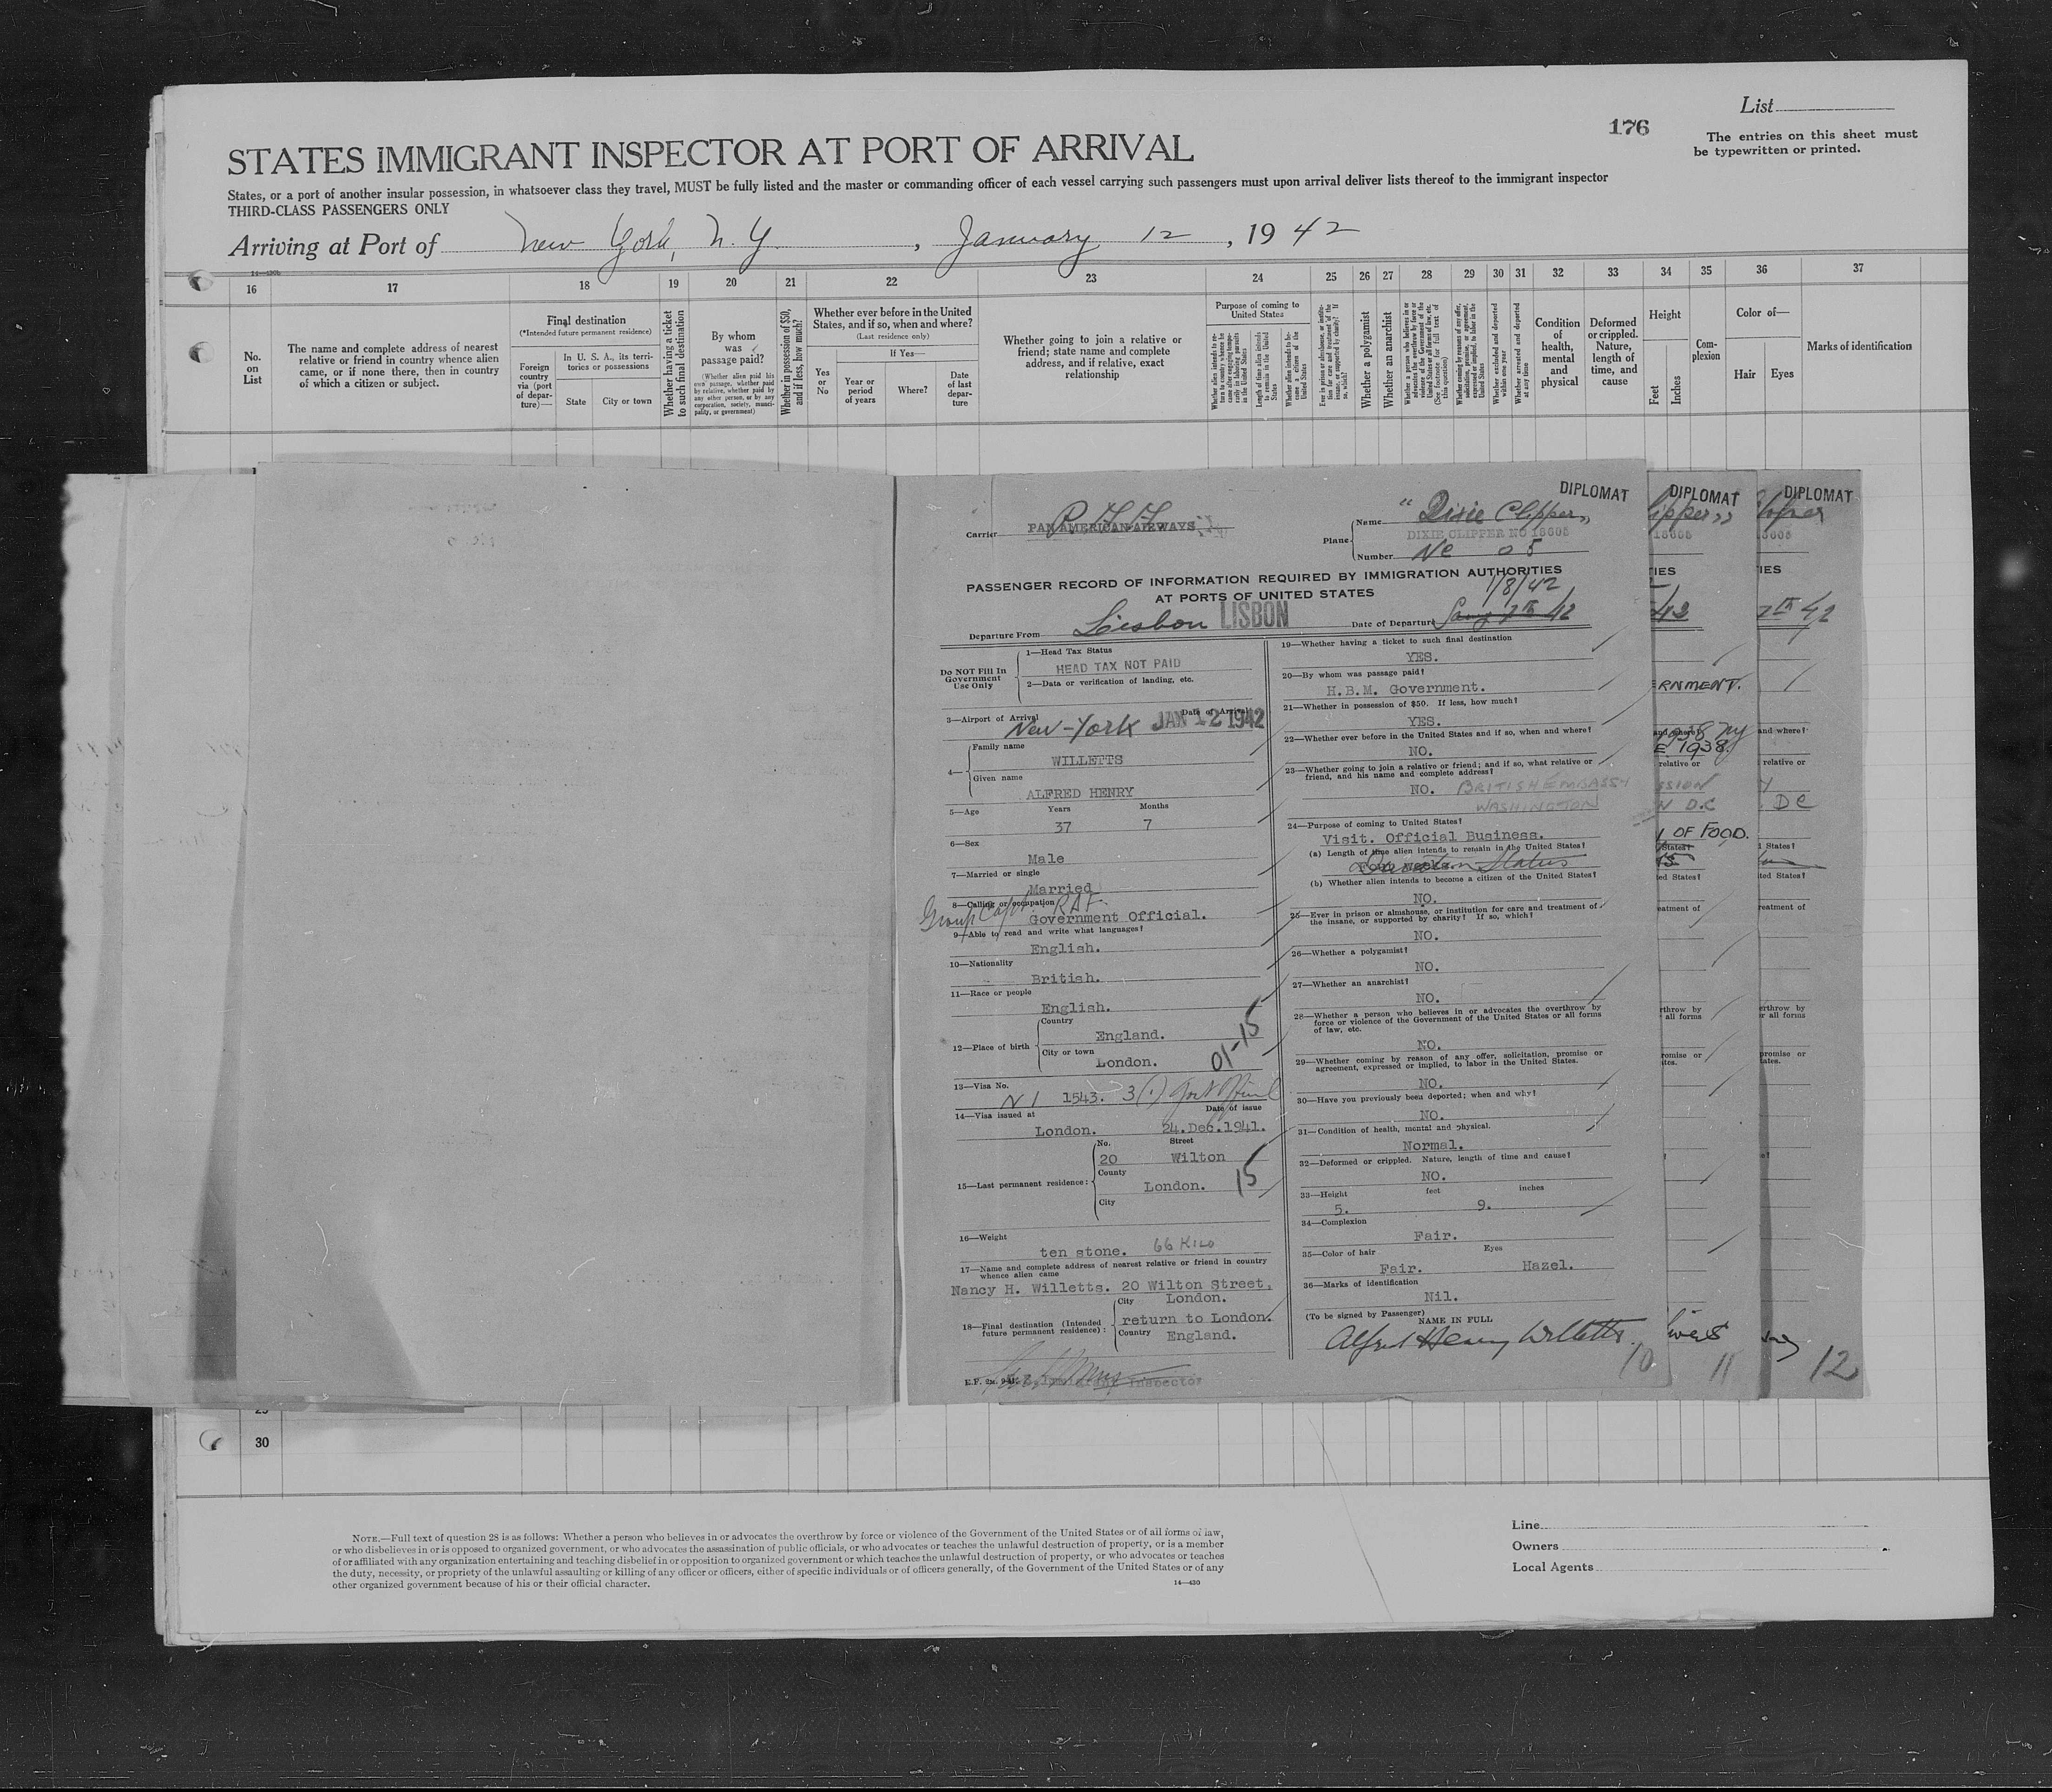 List
176
The entries on this sheet must
be typewritten or printed.
STATES IMMIGRANT INSPECTOR AT PORT OF ARRIVAL
States, or a port of another insular possession, in whatsoever class they travel, MUST be fully listed and the master or commanding officer of each vessel carrying such passengers must upon arrival deliver lists thereof to the immigrant inspector
THIRD-CLASS PASSENGERS ONLY
Arriving at Port of New York, N. Y. , January 12 , 19 42
16 17 18 19 20 21 22 23 24 25 26 27 28 29 30 31 32 33 34 35 36 37
No.
on
List
The name and complete address of nearest
relative or friend in country whence alien
came, or if none there, then in country
of which a citizen or subject.
Final destination
(*Intended future permanent residence)
Foreign
country
via (port
of depar-
ture)—
In U. S. A., its terri-
tories or possessions
State
City or town
Whether having a ticket
to such final destination
By whom
was
passage paid?
(Whether alien paid his
own passage, whether paid
by relative, whether paid by
any other person, or by any
corporation, society, munici-
pality, or government)
Whether in possession of $50,
and if less, how much?
Whether ever before in the United
States, and if so, when and where?
(Last residence only)
Yes
or
No
If Yes—
Year or
period
of years
Where?
Date
of last
depar-
ture
Whether going to join a relative or
friend; state name and complete
address, and if relative, exact
relationship
Purpose of coming to
United States
Whether a polygamist
Whether an anarchist
Whether excluded and deported
within one year
Whether arrested and deported
at any time
Condition
of
health,
mental
and
physical
Deformed
or crippled.
Nature,
length of
time, and
cause
Height
Feet
Inches
Com-
plexion
Color of—
Hair
Eyes
Marks of identification
DIPLOMAT
DIPLOMAT
DIPLOMAT
Carrier PAN AMERICAN AIRWAYS
Plane
Name "Dixie Clipper"
DIXIE CLIPPER NO 18605
Number NC 05
PASSENGER RECORD OF INFORMATION REQUIRED BY IMMIGRATION AUTHORITIES
AT PORTS OF UNITED STATES
1/8/42
Departure From Lisbon LISBON
Date of Departure Jany 7th 42
Do NOT Fill In
Government
Use Only
1—Head Tax Status
HEAD TAX NOT PAID
2—Data or verification of landing, etc.
3—Airport of Arrival New-York
Date of Arrival JAN 12 1942
4—
Family name
WILLETTS
Given name
ALFRED HENRY
5—Age Years Months
37 7
6—Sex
Male
7—Married or single
Married
8—Calling or occupation
Group Capt. RAF
Government Official.
9—Able to read and write what languages?
English.
10—Nationality
British.
11—Race or people
English.
12—Place of birth
Country
England.
City or town
London.
01-15
13—Visa No.
1543. 3(1) Govt Official
14—Visa issued at Date of issue
London. 24.Dec.1941.
15—Last permanent residence:
No. Street
20 Wilton
County
London.
15
City
16—Weight
ten stone. 66 KILO
17—Name and complete address of nearest relative or friend in country
whence alien came
Nancy H. Willetts. 20 Wilton Street,
London.
18—Final destination (Intended
future permanent residence):
City
return to London.
Country England.
Inspector
19—Whether having a ticket to such final destination
YES.
20—By whom was passage paid?
H.B.M. Government.
21—Whether in possession of $50. If less, how much?
YES.
22—Whether ever before in the United States and if so, when and where?
NO.
23—Whether going to join a relative or friend; and if so, what relative or
friend, and his name and complete address?
NO. BRITISH EMBASSY
WASHINGTON
24—Purpose of coming to United States?
Visit. Official Business.
(a) Length of time alien intends to remain in the United States?
Duration Status
(b) Whether alien intends to become a citizen of the United States?
NO.
25—Ever in prison or almshouse, or institution for care and treatment of
the insane, or supported by charity? If so, which?
NO.
26—Whether a polygamist?
NO.
27—Whether an anarchist?
NO.
28—Whether a person who believes in or advocates the overthrow by
force or violence of the Government of the United States or all forms
of law, etc.
NO.
29—Whether coming by reason of any offer, solicitation, promise or
agreement, expressed or implied, to labor in the United States.
NO.
30—Have you previously been deported; when and why?
NO.
31—Condition of health, mental and physical.
Normal.
32—Deformed or crippled. Nature, length of time and cause?
NO.
33—Height feet inches
5. 9.
34—Complexion
Fair.
35—Color of hair Eyes
Fair. Hazel.
36—Marks of identification
Nil.
(To be signed by Passenger)
NAME IN FULL
Alfred Henry Willetts.
10
11
12
30
NOTE.—Full text of question 28 is as follows: Whether a person who believes in or advocates the overthrow by force or violence of the Government of the United States or of all forms of law,
or who disbelieves in or is opposed to organized government, or who advocates the assassination of public officials, or who advocates or teaches the unlawful destruction of property, or is a member
of or affiliated with any organization entertaining and teaching disbelief in or opposition to organized government or which teaches the unlawful destruction of property, or who advocates or teaches
the duty, necessity, or propriety of the unlawful assaulting or killing of any officer or officers, either of specific individuals or of officers generally, of the Government of the United States or of any
other organized government because of his or their official character.
14—430
Line
Owners
Local Agents